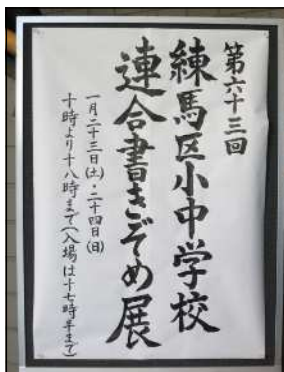 第六十三回
練馬区小中学校
連合書きぞめ展
一月二十三日(土)・二十四日(日)
十時より十八時まで(入場は十七時半まで)